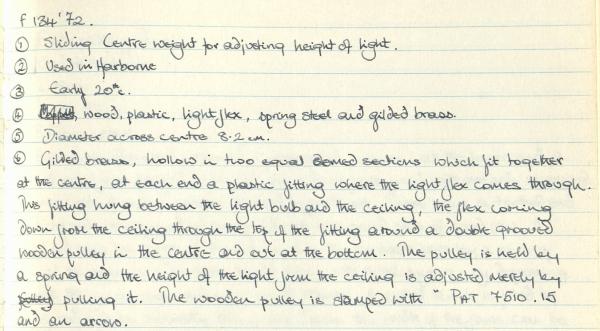 f 134'72.
① Sliding Centre weight for adjusting height of light.
② Used in Harborne
③ Early 20th c.
④ wood, plastic, light flex, spring steel and gilded brass.
⑤ Diameter across centre 8.2 cm.
⑥ Gilded brass, hollow in two equal domed sections which fit together
at the centre, at each end a plastic fitting where the light flex comes through.
This fitting hung between the light bulb and the ceiling, the flex coming
down from the ceiling through the top of the fitting around a double grooved
wooden pulley in the centre and out at the bottom. The pulley is held by
a spring and the height of the light from the ceiling is adjusted merely by
pulling it. The wooden pulley is stamped with "PAT 7510.15
and an arrow.